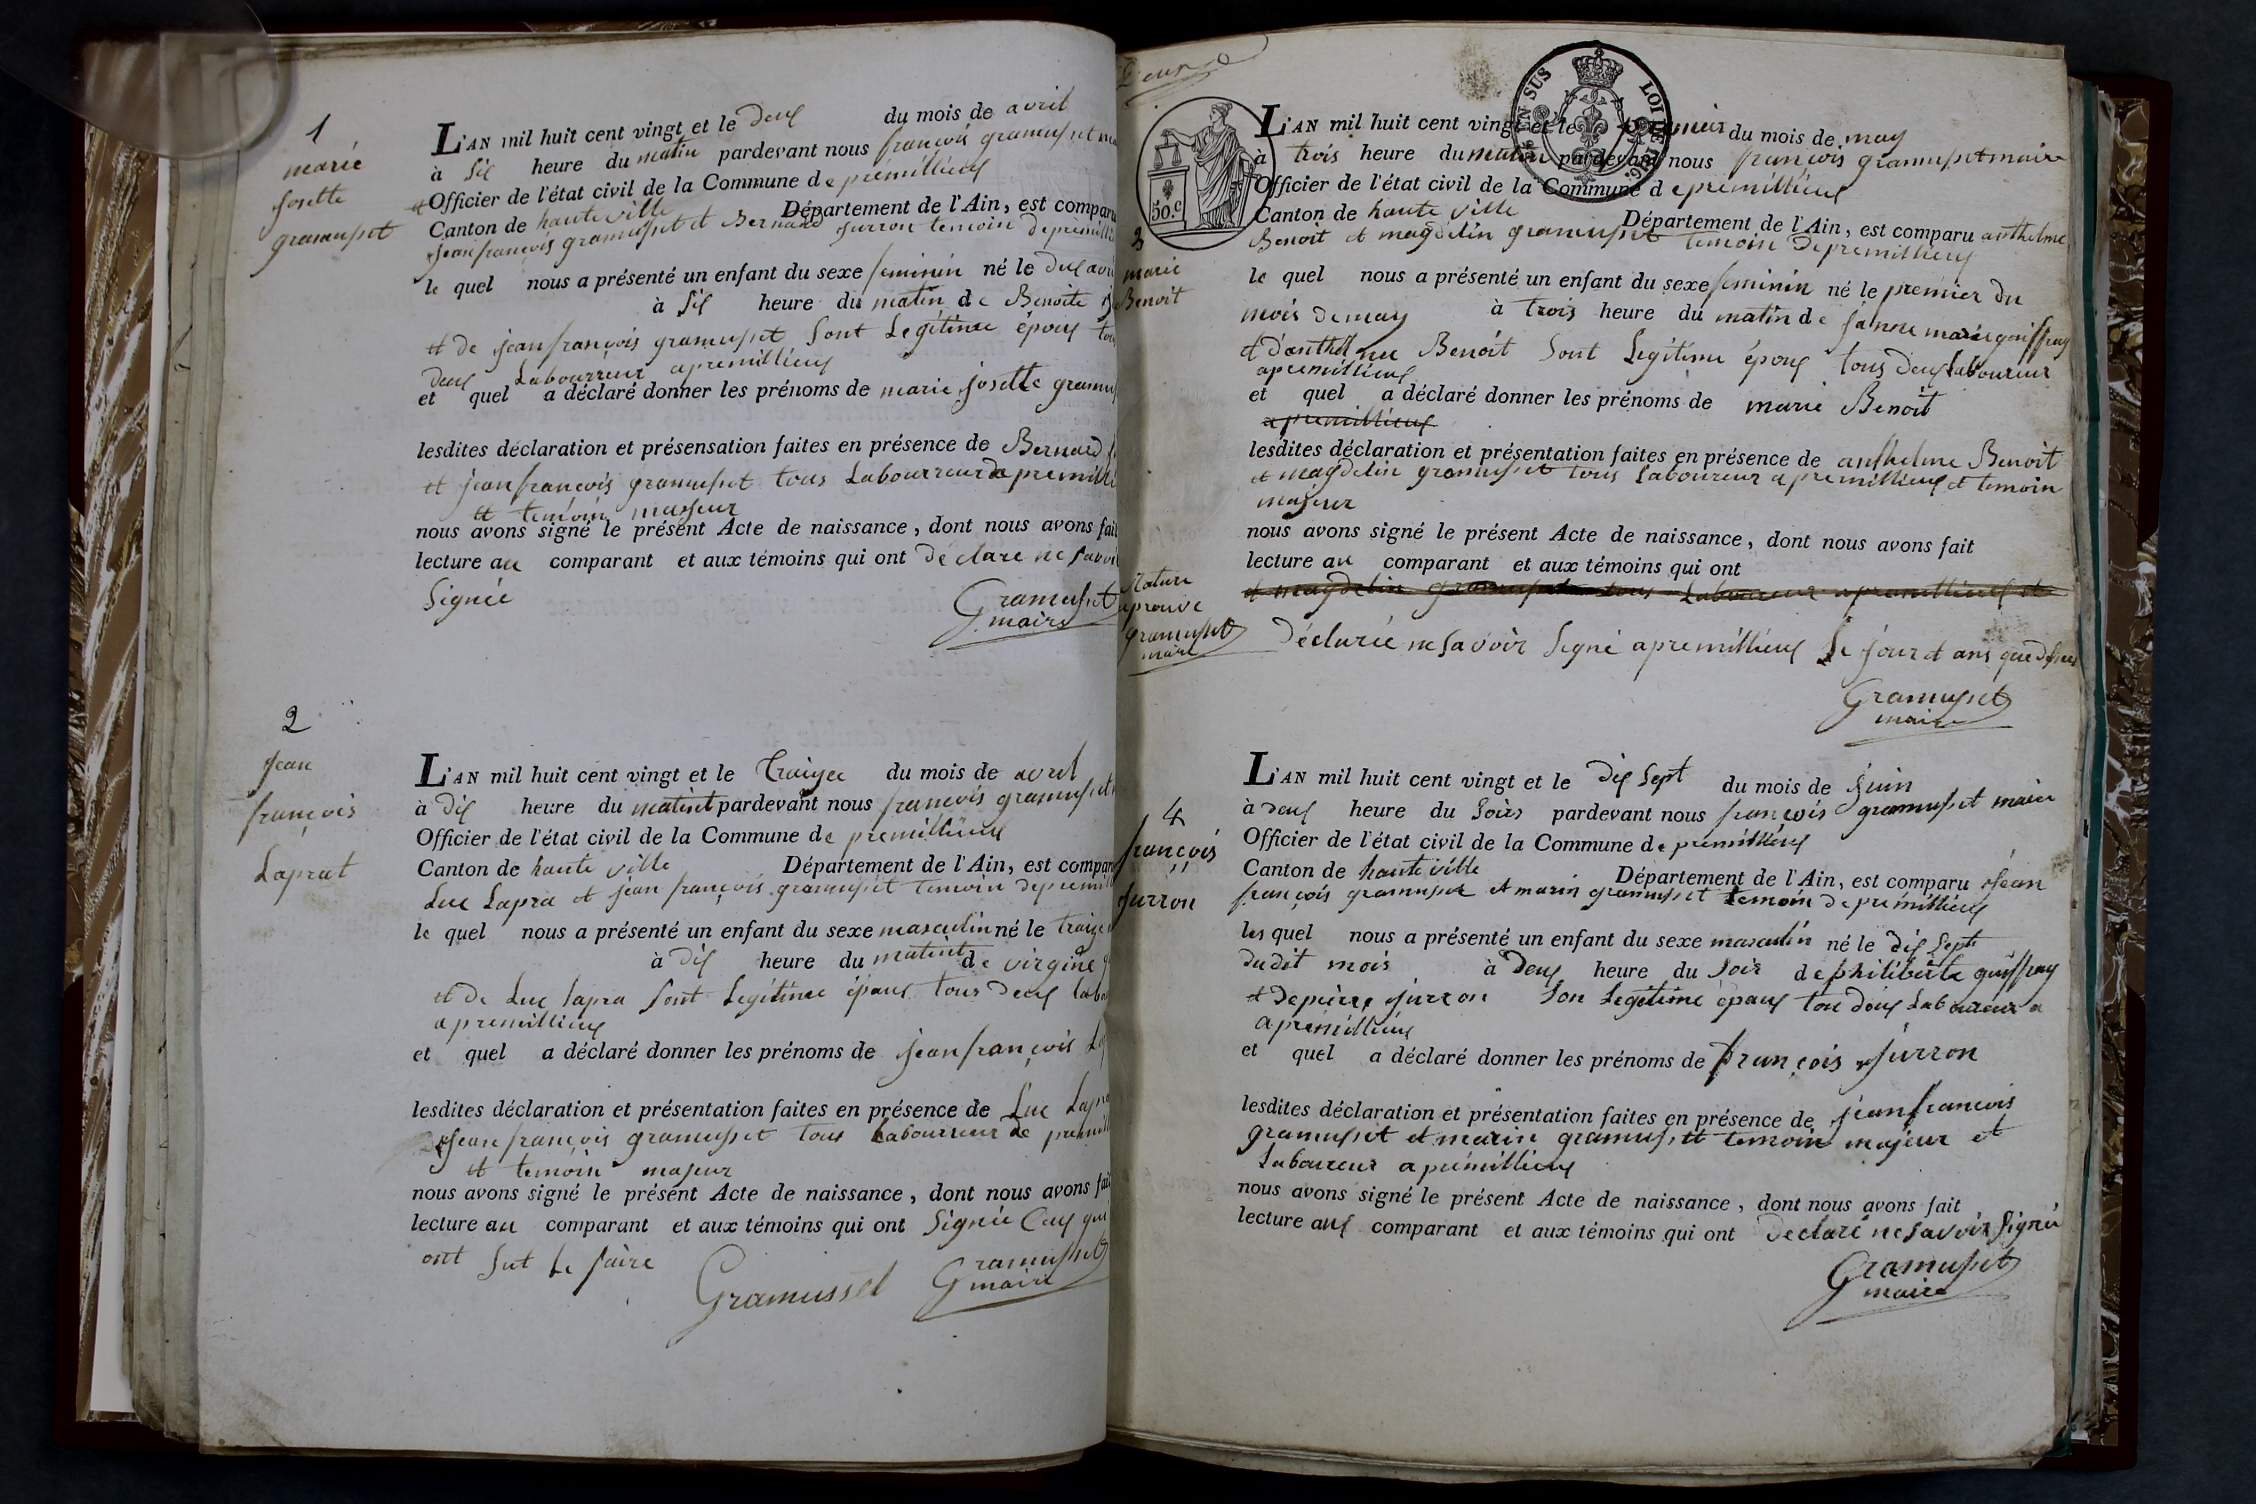 1
marie
josette
gramusset
L'AN mil huit cent vingt et le deux du mois de avril
à six heure du matin pardevant nous françois gramusset
Officier de l'état civil de la Commune de premillieux
Canton de haute ville Département de l'Ain, est comparu
jean françois gramusset et Bernard Jurron temoin de
le quel nous a présenté un enfant du sexe feminin né le deux
à six heure du matin de Benoite
et de jean françois gramusset sont Legitime époux
deux Labourreur a premillieux
et quel a déclaré donner les prénoms de marie josette
lesdites déclaration et présensation faites en présence de Bernard
et jean françois gramusset tous Labourreur de
et temoin majeur
nous avons signé le présent Acte de naissance, dont nous avons fait
lecture au comparant et aux témoins qui ont déclare ne savoir
Signée
Gramusset
maire
2
jean
françois
Laprat
L'AN mil huit cent vingt et le traizee du mois de avril
à dix heure du matint pardevant nous françois gramusset
Officier de l'état civil de la Commune de premillieux
Canton de haute ville Département de l'Ain, est comparu
Luc Lapra et jean françois gramusset temoin de
le quel nous a présenté un enfant du sexe masculin né le
à dix heure du matint de virgine
et de Luc lapra sont Legitime époux tous deux
a premillieux
et quel a déclaré donner les prénoms de jean françois
lesdites déclaration et présentation faites en présence de Luc
jean françois gramusset tous Labourreur de
et temoin majeur
nous avons signé le présent Acte de naissance, dont nous avons fait
lecture au comparant et aux témoins qui ont Signée Ceux qui
ont Sut le faire
Gramussel Gramusset
maire
50.c
L'AN mil huit cent vingt et le premier du mois de may
à trois heure du matin pardevant nous françois gramusset maire
Officier de l'état civil de la Commune de premillieux
Canton de haute ville Département de l'Ain, est comparu anthelme
Benoit et magdelin gramusset temoin de premillieux
3
marie
Benoit
le quel nous a présenté un enfant du sexe feminin né le premier du
mois de may à trois heure du matin de marie
et d'anthelme Benoit sont Legitime époux tous deux Laboureur
a premillieux
et quel a déclaré donner les prénoms de marie Benoit
a premillieux
lesdites déclaration et présentation faites en présence de anthelme Benoit
et magdelin gramusset tous Laboureur a premillieux et temoin
majeur
nous avons signé le présent Acte de naissance, dont nous avons fait
lecture au comparant et aux témoins qui ont
et magdelin gramusset tous Laboureur a premillieux et
Rature
aprouvé
gramusset
maire
déclarée ne savoir Signé a premillieux Le jour et ans que
Gramusset
maire
4
françois
Jurron
L'AN mil huit cent vingt et le dix Sept du mois de juin
à deux heure du Soir pardevant nous françois gramusset maire
Officier de l'état civil de la Commune de premillieux
Canton de haute ville Département de l'Ain, est comparu jean
françois gramusset et marin gramusset temoin de premillieux
les quel nous a présenté un enfant du sexe masculin né le dix Sept
dudit mois à deux heure du Soir de philiberte guiffray
et de pierre jurron Son Legitime époux tou deux Laboureur a
a premillieux
et quel a déclaré donner les prénoms de françois Jurron
lesdites déclaration et présentation faites en présence de jean francois
gramusset et marin gramusset temoin majeur et
Laboureur a premillieux
nous avons signé le présent Acte de naissance, dont nous avons fait
lecture aux comparant et aux témoins qui ont declaré ne savoir Signée
Gramusset
maire